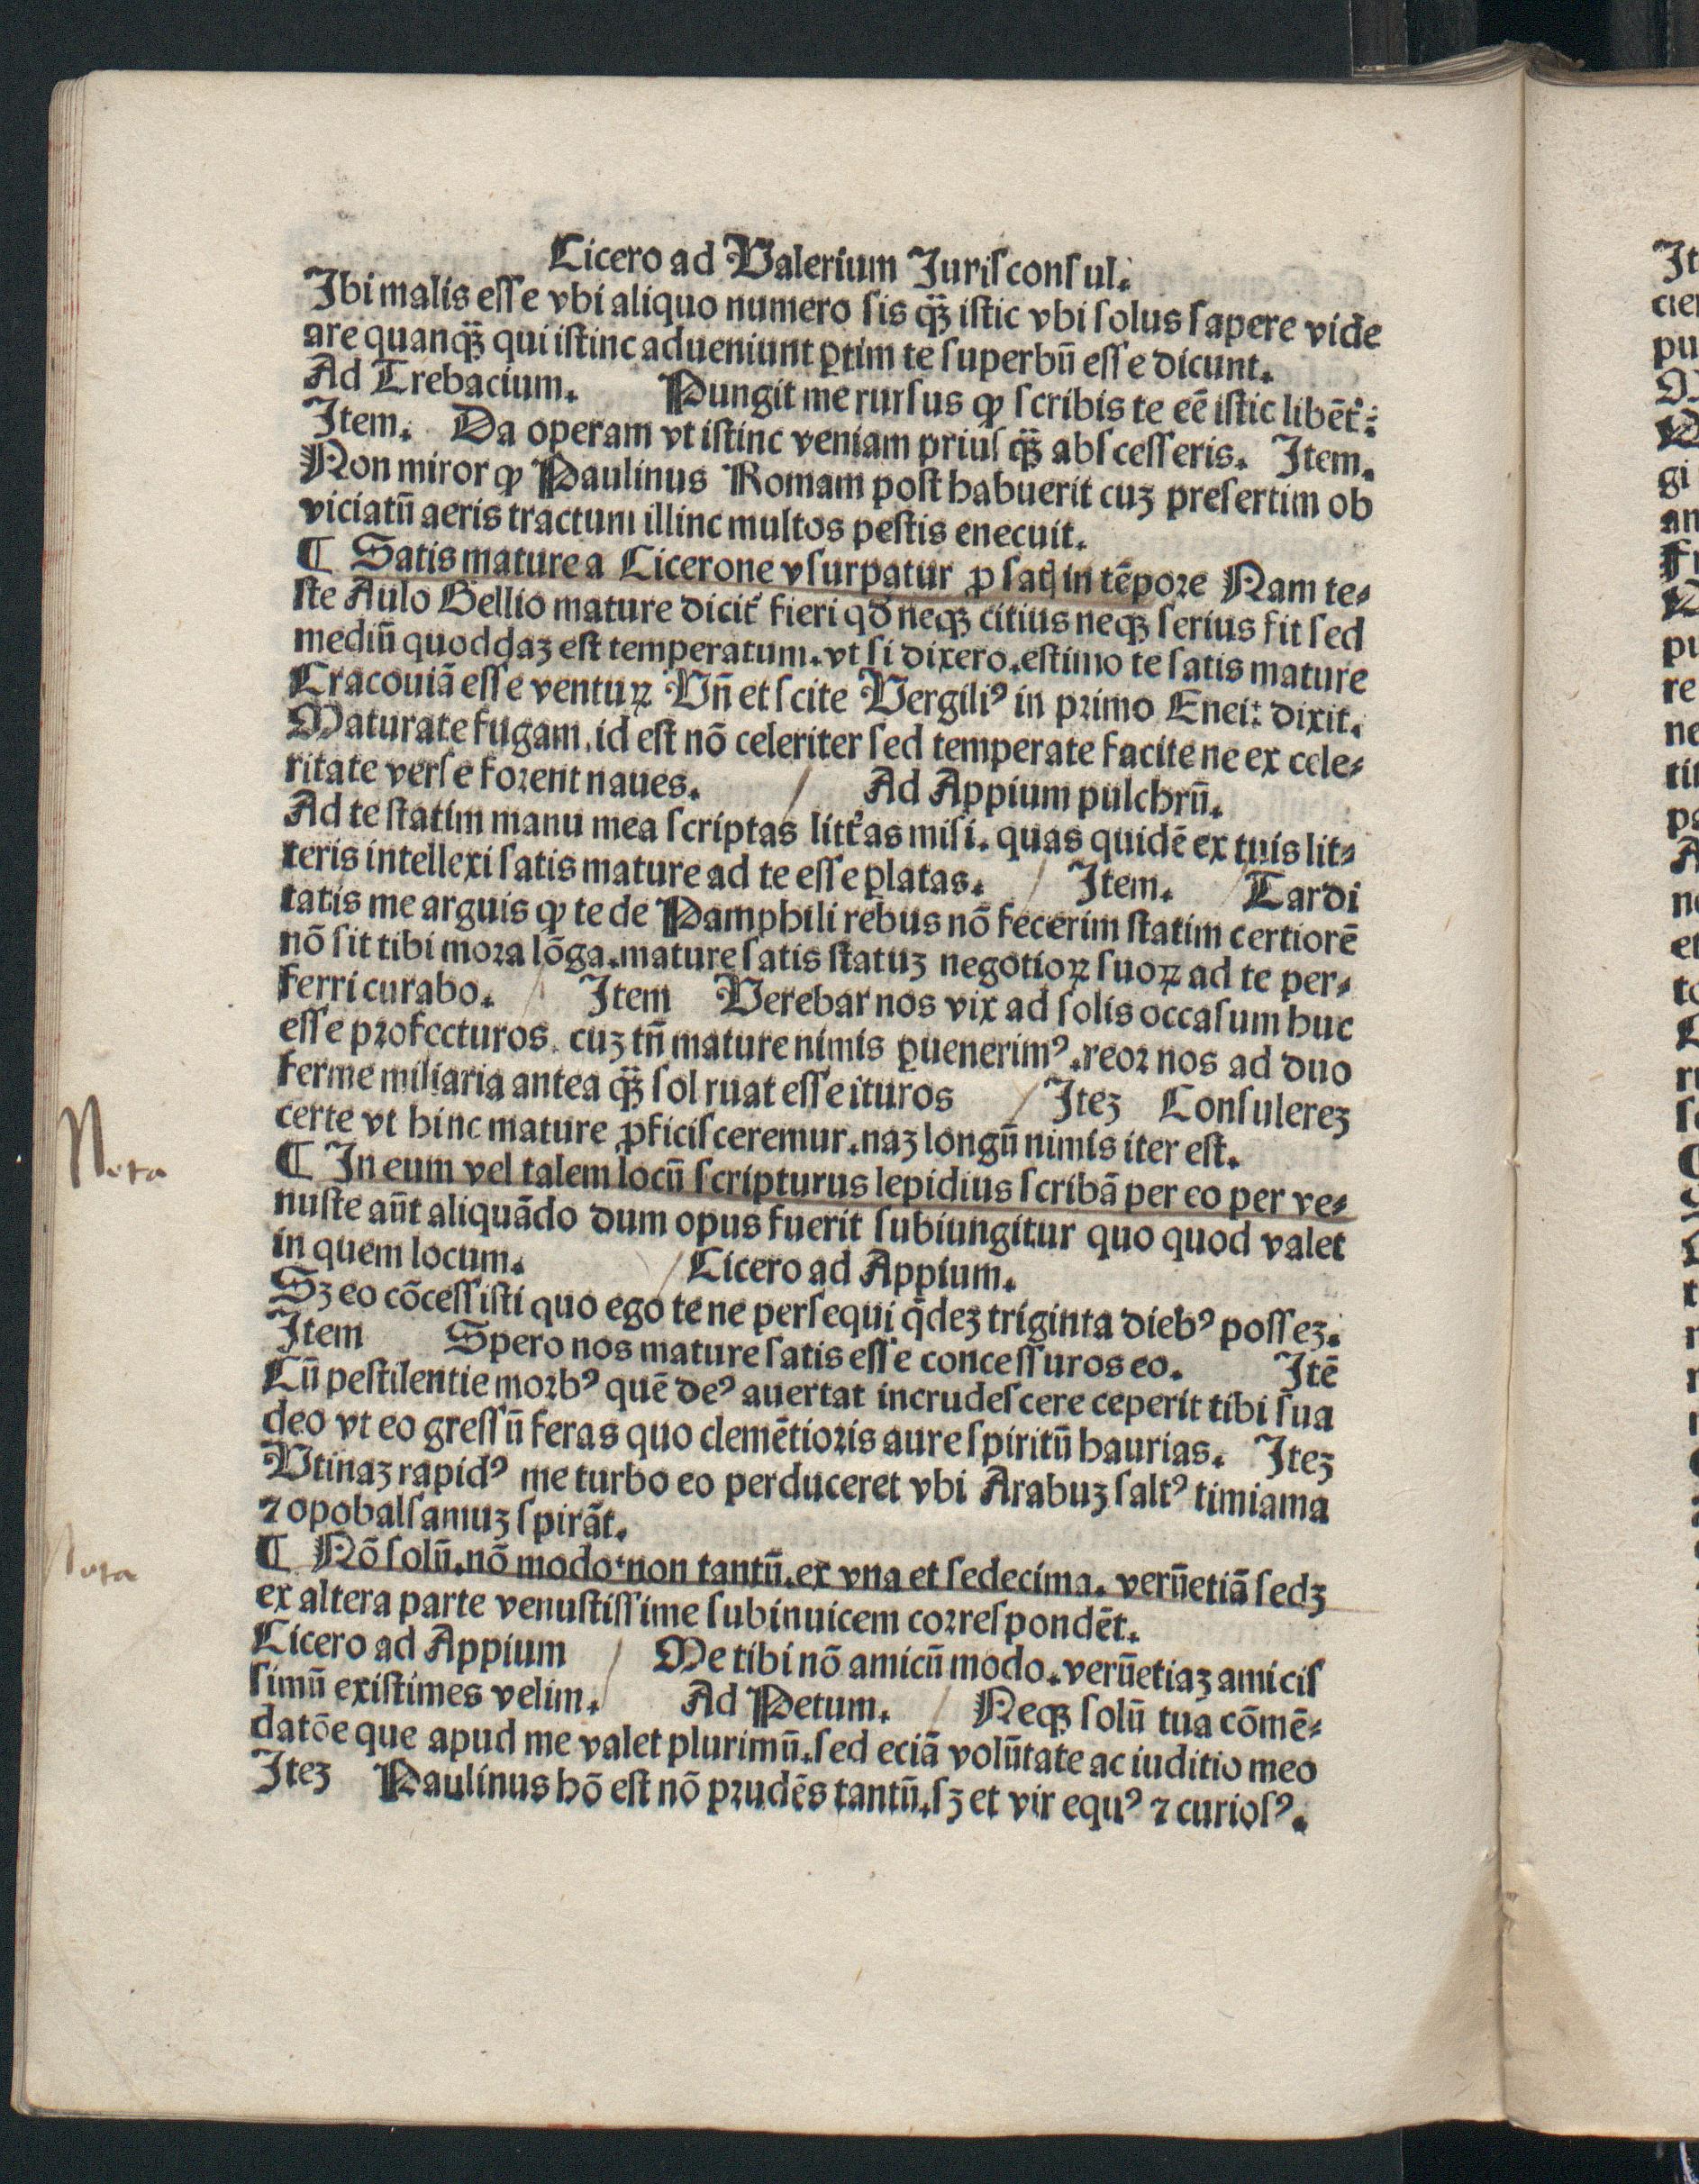 Cicero ad Valerium Jurisconsul.
Ibi malis esse vbi aliquo numero sis qꝫ̃ istic vbi solus sapere vide
are quanqꝫ̃ qui istinc adueniunt ꝑtim te superbū esse dicunt.
Ad Trebacium. Pungit me rursus ꝙ scribis te eē istic libēt᷑:
Item. Da operam vt istinc veniam prius qꝫ̃ abscesseris. Item.
Non miror ꝙ Paulinus Romam post habuerit cuꝫ presertim ob
viciatū aeris tractum illinc multos pestis enecuit.
¶ Satis mature a Cicerone vsurpatur ꝓ satꝭ in tēpore Nam te⸗
ste Aulo Gellio mature dicit᷑ fieri qđ neqꝫ citius neqꝫ serius fit sed
mediū quoddaꝫ est temperatum. vt si dixero. estimo te satis mature
Cracouiā esse ventuꝝ Vn̄ et scite Vergiliꝰ in primo Enei: dixit.
Maturate fugam. id est nō celeriter sed temperate facite ne ex cele⸗
ritate verse forent naues. / Ad Appium pulchrū.
Ad te statim manu mea scriptas litt᷑as misi. quas quidē ex tuis lit⸗
teris intellexi satis mature ad te esse ꝑlatas. / Item. / Tardi
tatis me arguis ꝙ te de Pamphili rebus nō fecerim statim certiorē
nō sit tibi mora lōga. mature satis statuꝫ negotioꝝ suoꝝ ad te per⸗
ferri curabo. / Item Verebar nos vix ad solis occasum huc
esse profecturos. cuꝫ tn̄ mature nimis ꝑuenerimꝰ. reor nos ad duo
ferme miliaria antea qꝫ̃ sol ruat esse ituros / Iteꝫ Consulereꝫ
certe vt hinc mature ꝓficisceremur. naꝫ longū nimis iter est.
Nota
¶ In eum vel talem locū scripturus lepidius scribā per eo per ve⸗
nuste aūt aliquādo dum opus fuerit subiungitur quo quod valet
in quem locum. / Cicero ad Appium.
Sꝫ eo cōcessisti quo ego te ne persequi q̄deꝫ triginta diebꝰ posseꝫ.
Item Spero nos mature satis esse concessuros eo. Itē
Cū pestilentie morbꝰ quē deꝰ auertat incrudescere ceperit tibi sua
deo vt eo gressū feras quo clemētioris aure spiritū haurias. Iteꝫ
Vtinaꝫ rapidꝰ me turbo eo perduceret vbi Arabuꝫ saltꝰ timiama
⁊ opobalsamuꝫ spirāt.
Nota
¶ Nō solū. nō modo. non tantū. ex vna et sedecima. verūetiā sedꝫ
ex altera parte venustissime subinuicem correspondēt.
Cicero ad Appium / Me tibi nō amicū modo. verūetiaꝫ amicis
simū existimes velim. / Ad Petum. / Neqꝫ solū tua cōmē⸗
datōe que apud me valet plurimū. sed eciā volūtate ac iuditio meo
Iteꝫ Paulinus hō est nō prudēs tantū. sꝫ et vir equꝰ ⁊ curiosꝰ.